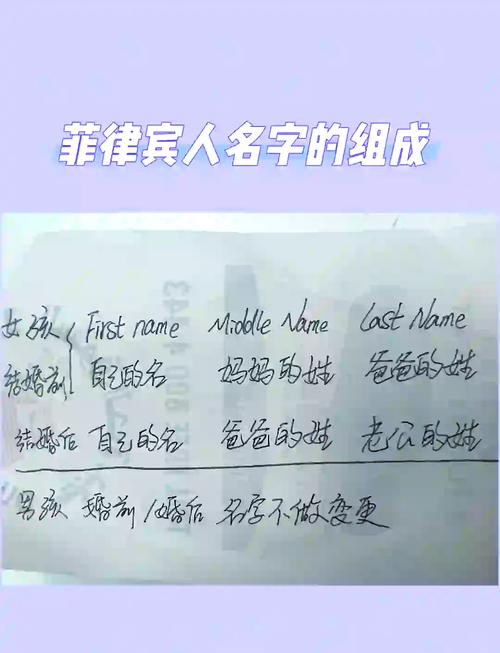 菲律宾人名字的组成
女孩 First name Middle Name Last Name
结婚前 自己的名 妈妈的姓 爸爸的姓
结婚后 自己的名 爸爸的姓 老公的姓
男孩 婚前/婚后 名字不做变更